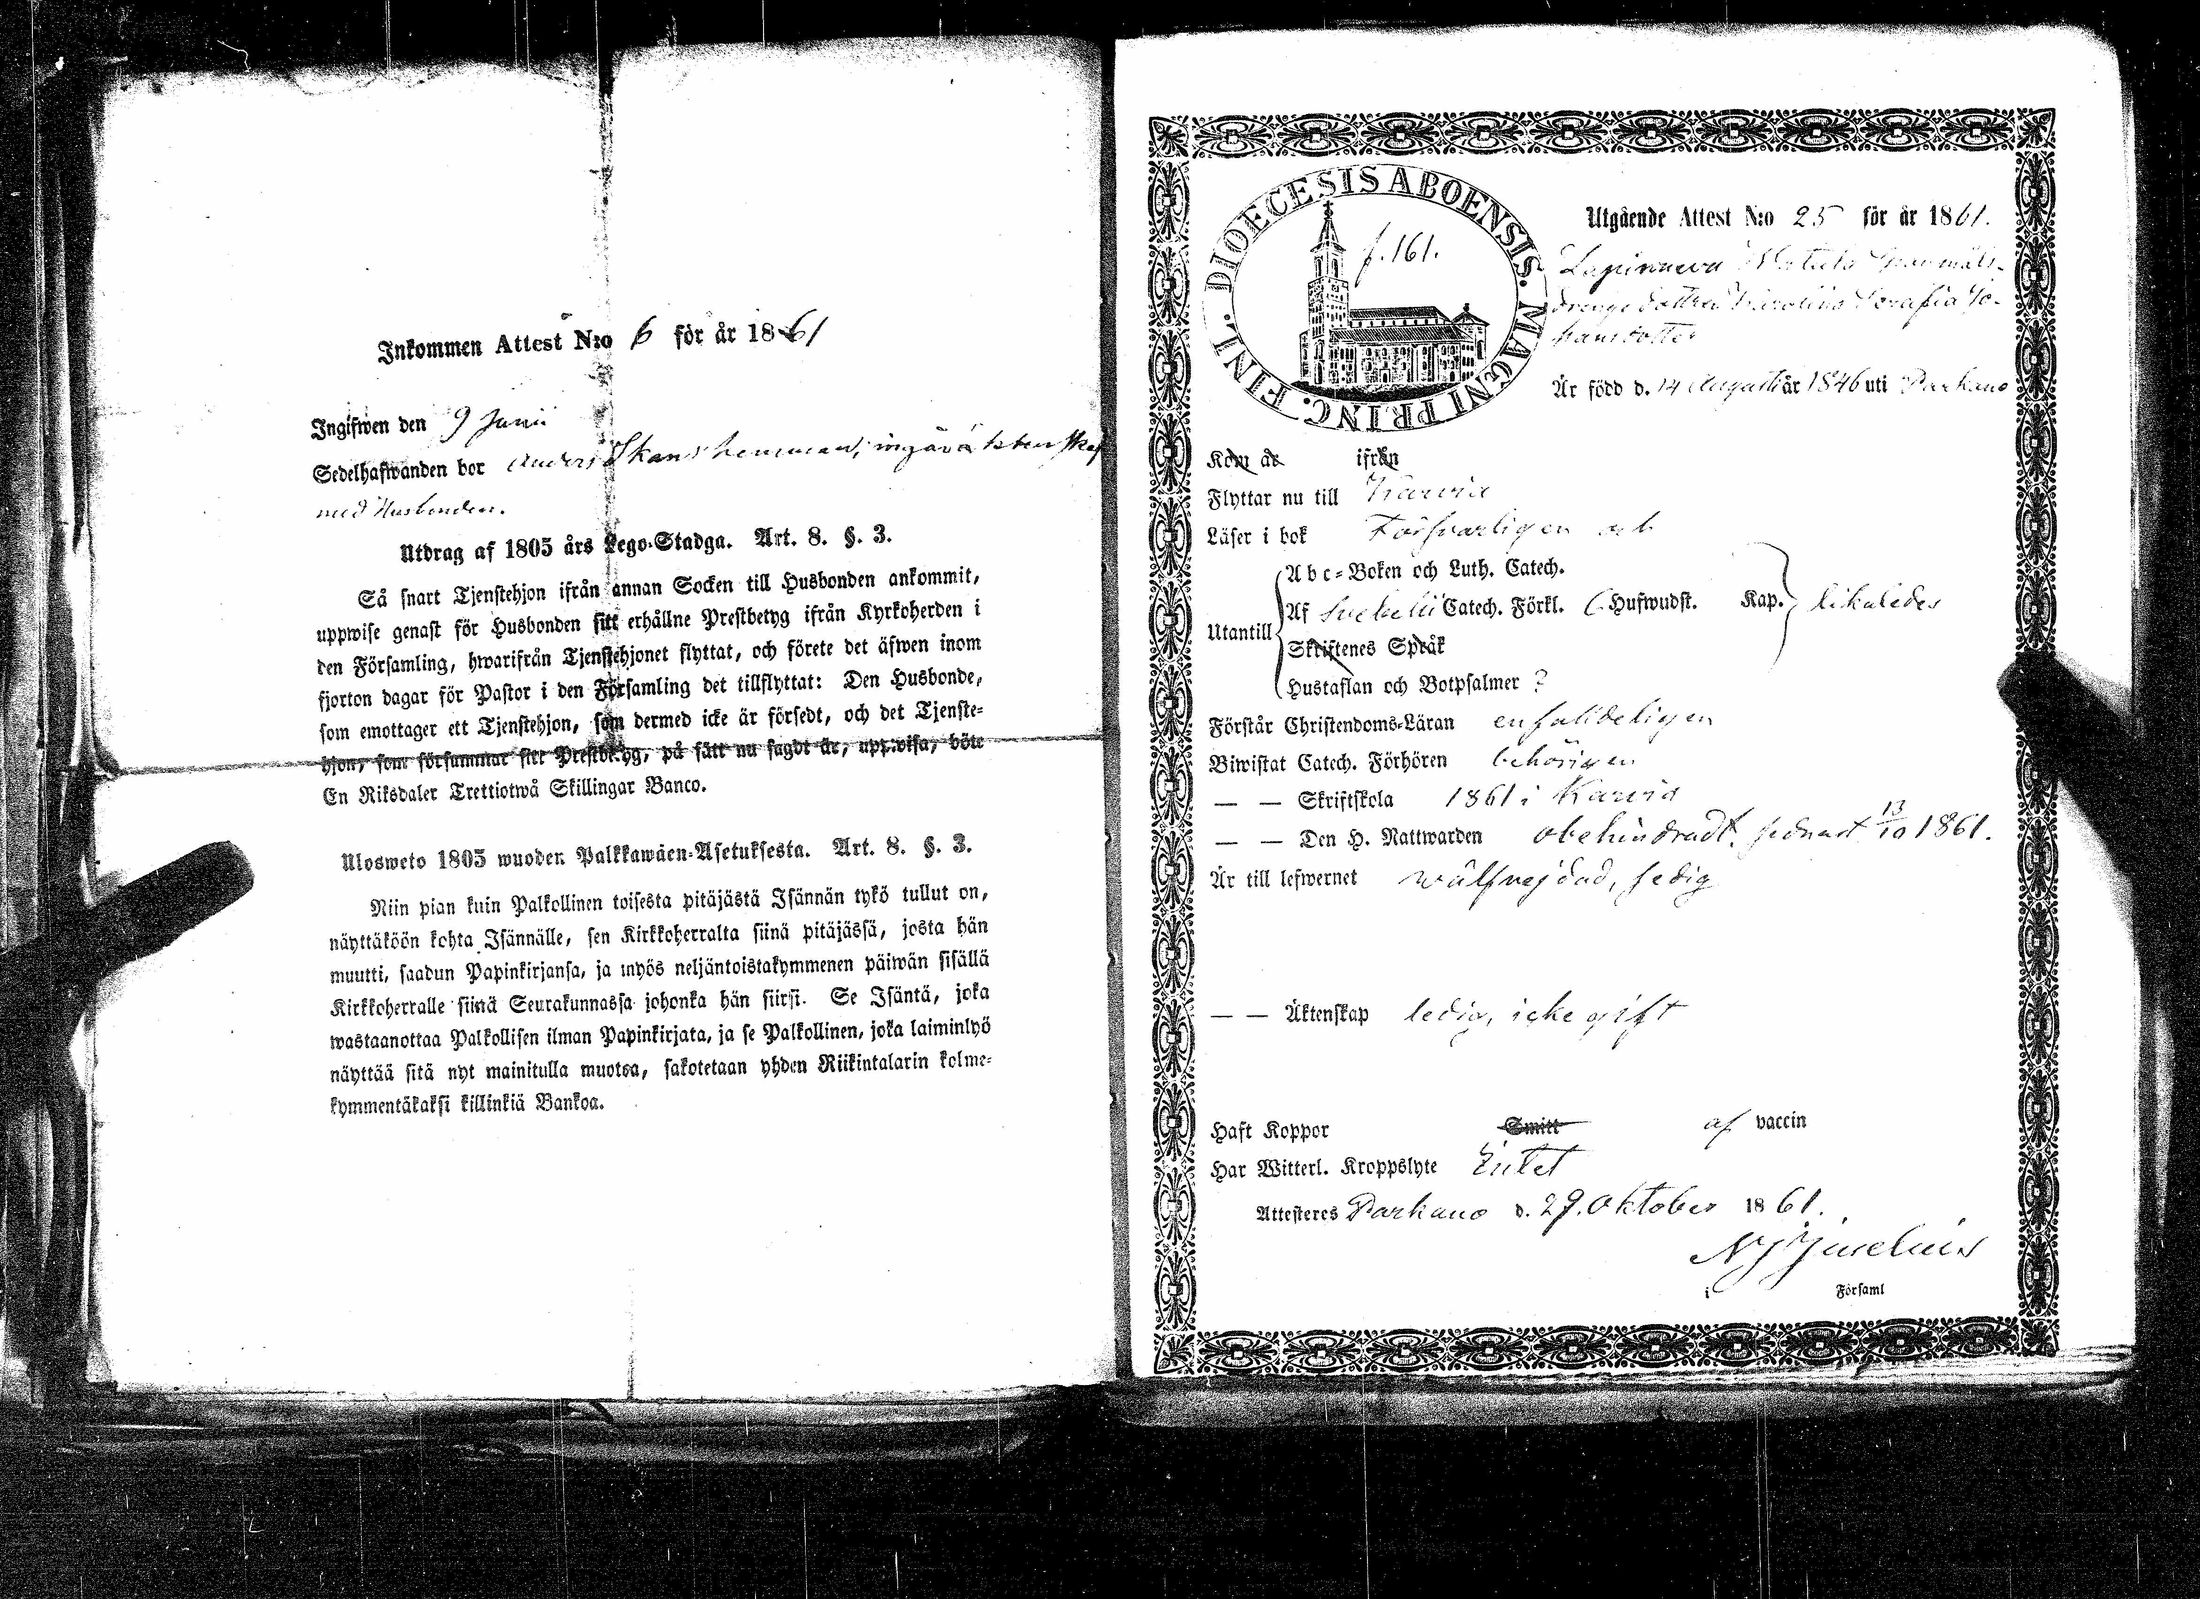 Inkommen Attest N:o 6 för år 1861
Ingifwen den 9 Junii
Sedelhafwanden bor Anders Skans hemman, ingår äktenskap
med Husbonden.
Utdrag af 1805 års Lego-Stadga. Art. 8. §. 3.
Så snart Tjenstehjon ifrån annan Socken till Husbonden ankommit,
uppwise genast för Husbonden sitt erhållne Prestbetyg ifrån Kyrkoherden i
den Församling, hwarifrån Tjenstehjonet flyttat, och förete det äfwen inom
fjorton dagar för Pastor i den Församling det tillflyttat: Den Husbonde,
som emottager ett Tjenstehjon, som dermed icke är försedt, och det Tjenste-
hjon, som försummar sitt Prestbetyg, på sätt nu sagdt är, uppwisa, böte
En Riksdaler Trettiotwå Skillingar Banco.
Ulosweto 1805 wuoden Palkkawäen-Asetuksesta. Art. 8. §. 3.
Niin pian kuin Palkollinen toisesta pitäjästä Isännän tykö tullut on,
näyttäköön kohta Isännälle, sen Kirkkoherralta siinä pitäjässä, josta hän
muutti, saadun Papinkirjansa, ja myös neljäntoistakymmenen päiwän sisällä
Kirkkoherralle siinä Seurakunnassa johonka hän siirsi. Se Isäntä, joka
wastaanottaa Palkollisen ilman Papinkirjata, ja se Palkollinen, joka laiminlyö
näyttää sitä nyt mainitulla muotoa, sakotetaan yhden Riikintalarin kolme-
kymmentäkaksi killinkiä Bankoa.
DIOECESIS ABOENSIS. MAGNI PRINC. FINL.
f. 161.
Utgående Attest N:o 25 för år 1861.
Lapinneva
dottren Karolina Serafia Jo-
hansdotter
Är född d. 14 Augusti år 1846 uti Parkano
Kom år ifrån
Flyttar nu till Karvia
Läser i bok Försvarligen och
Utantill
Abc-Boken och Luth. Catech.
Af Svebelii Catech. Förkl. 6 Hufwudst. Kap. likaledes
Skriftenes Språk
Hustaflan och Botpsalmer ?
Förstår Christendoms-Läran enfaldeligen
Biwistat Catech. Förhören behörigen
— — Skriftskola 1861 i Karvia
— — Den H. Nattwarden obehindradt, sednast 13/10 1861.
Är till lefwernet wälfrejdad, sedig
— — Äktenskap ledig, icke gift
Haft Koppor Smitt af vaccin
Har Witterl. Kroppslyte Intet
Attesteres Parkano d. 29. Oktober 1861.
i Församl